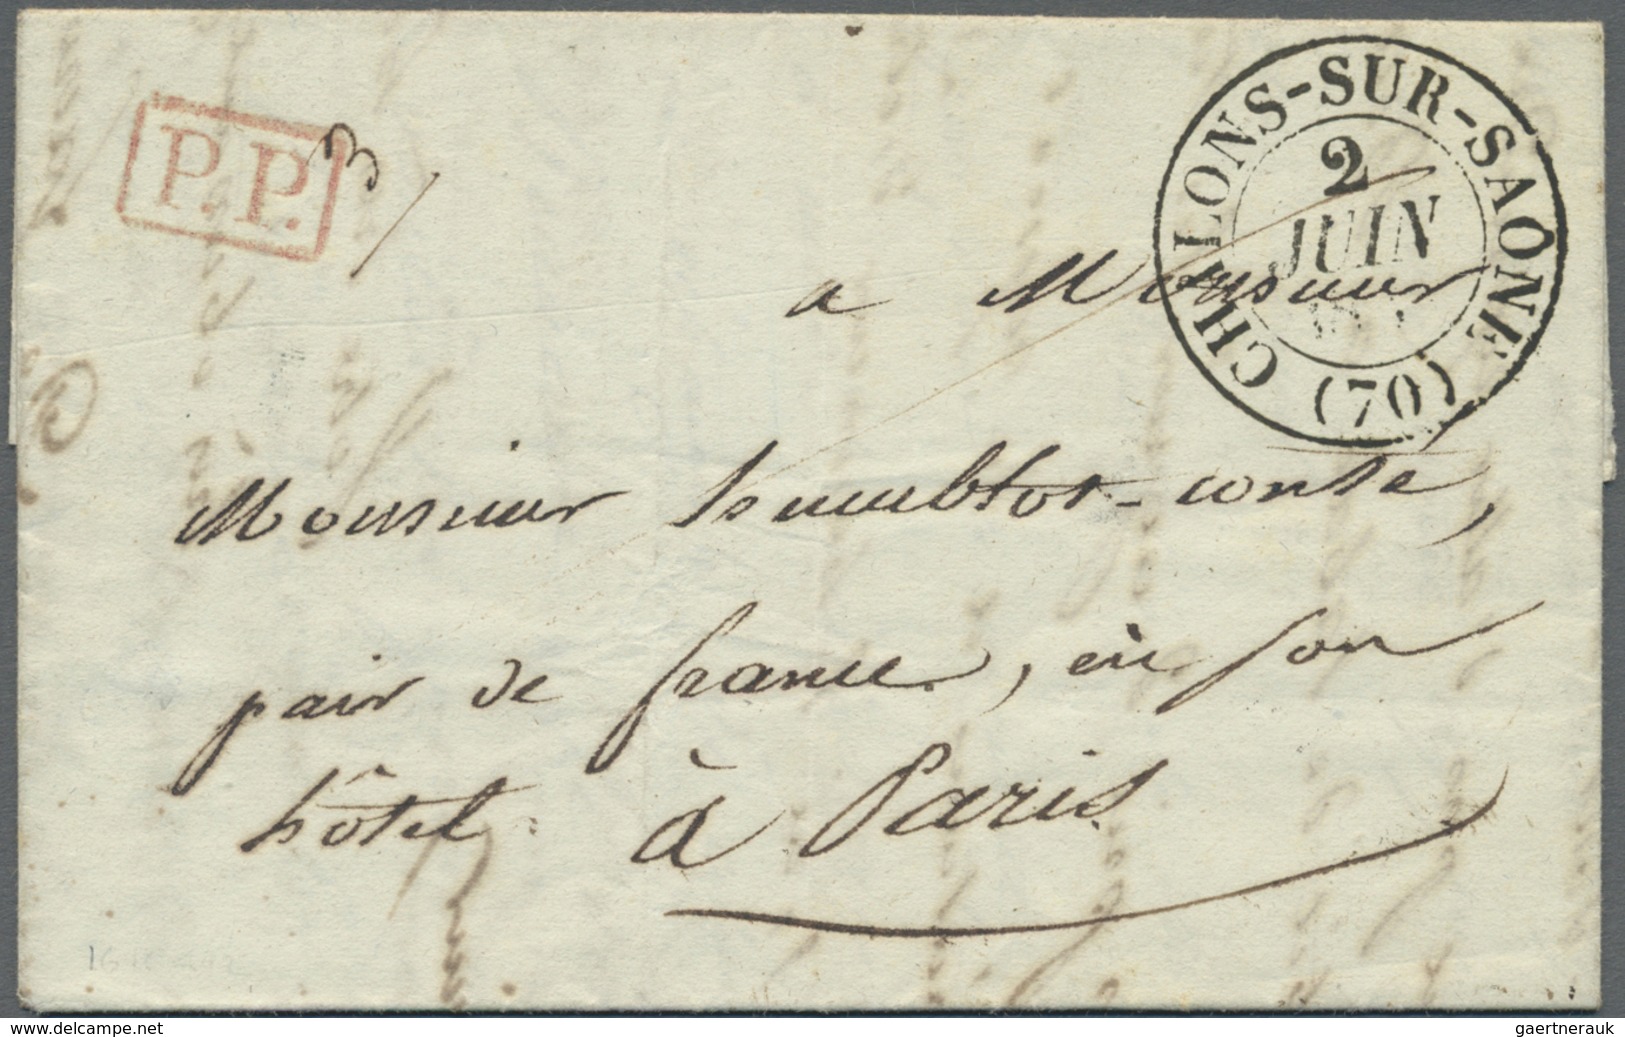 P.P.
3
CHALONS-SUR-SAÔNE (70)
2
JUIN
a Monsieur
Monsieur humblot-conté,
pair de france, en son
hôtel. à Paris.
www.delcampe.net
gaertnerauk